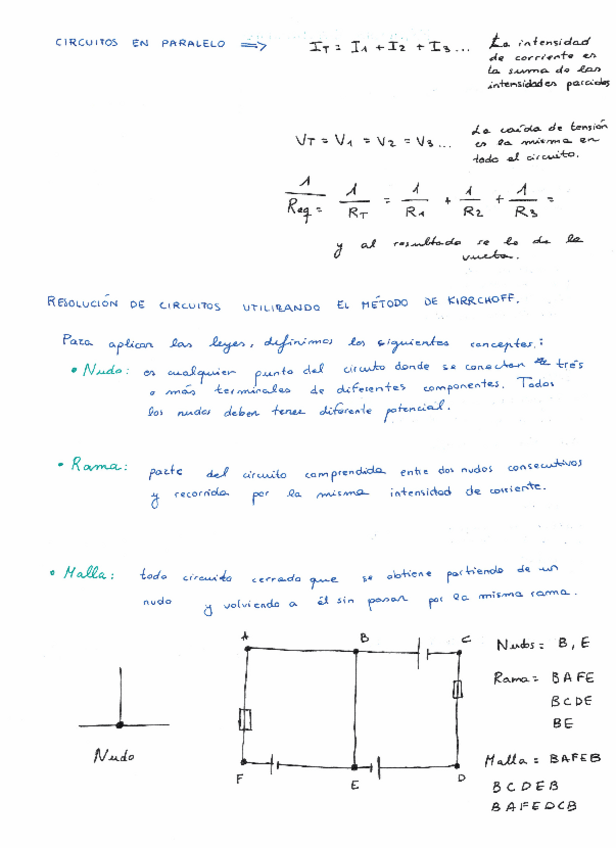 CIRCUITOS EN PARALELO ⇒ IT = I1 + I2 + I3 ... La intensidad
de corriente es
la suma de las
intensidades parciales
VT = V1 = V2 = V3 ... La caída de tensión
es la misma en
todo el circuito.
1/Req = 1/RT = 1/R1 + 1/R2 + 1/R3 =
y al resultado se le da la
vuelta.
RESOLUCIÓN DE CIRCUITOS UTILIZANDO EL MÉTODO DE KIRRCHOFF.
Para aplicar las leyes, definimos los siguientes conceptos:
• Nudo: es cualquier punto del circuito donde se conectan tres
o más terminales de diferentes componentes. Todos
los nudos deben tener diferente potencial.
• Rama: parte del circuito comprendida entre dos nudos consecutivos
y recorrida por la misma intensidad de corriente.
• Malla: todo circuito cerrado que se obtiene partiendo de un
nudo y volviendo a él sin pasar por la misma rama.
A B C
F E D
Nudo
Nudos = B, E
Rama = BAFE
BCDE
BE
Malla = BAFEB
BCDEB
BAFEDCB